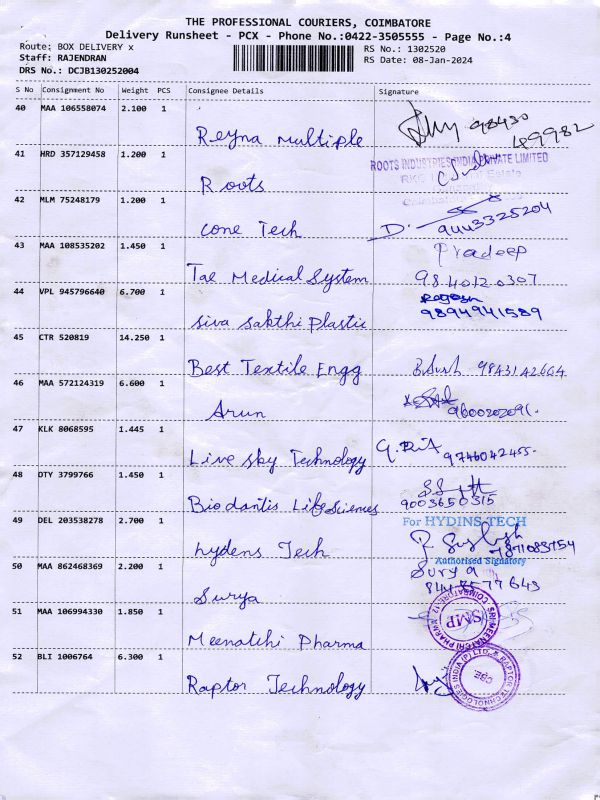 THE PROFESSIONAL COURIERS, COIMBATORE
Delivery Runsheet - PCX - Phone No.:0422-3505555 - Page No.:4
Route: BOX DELIVERY x
RS No.: 1302520
Staff: RAJENDRAN
RS Date: 08-Jan-2024
DRS No.: DCJB130252004
S No Consignment No Weight PCS Consignee Details Signature
40 MAA 106558074 2.100 1
Reyna Multiple
98430
49982
41 HRD 357129458 1.200 1
Roots
ROOTS INDUSTRIES INDIA PRIVATE LIMITED
42 MLM 75248179 1.200 1
Cone Tech
D.
9443325204
43 MAA 108535202 1.450 1
Tae Medical System
Pradeep
9840120307
44 VPL 945796640 6.700 1
Siva Sakthi Plastic
9894941589
45 CTR 520819 14.250 1
Best Textile Engg
9843142664
46 MAA 572124319 6.600 1
Arun
9600202091.
47 KLK 8068595 1.445 1
Live Sky Technology
9746042455.
48 DTY 3799766 1.450 1
Biodantis Life Sciences
9003650315
49 DEL 203538278 2.700 1
hydens Tech
For HYDINS TECH
7871083754
Authorised Signatory
50 MAA 862468369 2.200 1
Surya
Surya
51 MAA 106994330 1.850 1
Meenatchi Pharma
SRI MEENATCHI PHARMA
COIMBATORE-12
SMP
52 BLI 1006764 6.300 1
Raptor Technology
RAPTOR TECHNOLOGIES INDIA (P) LTD.
CBE